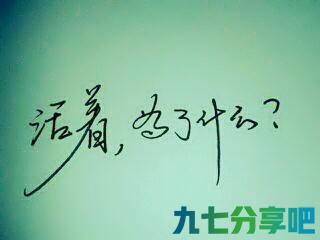 活着,为了什么?
九七分享吧